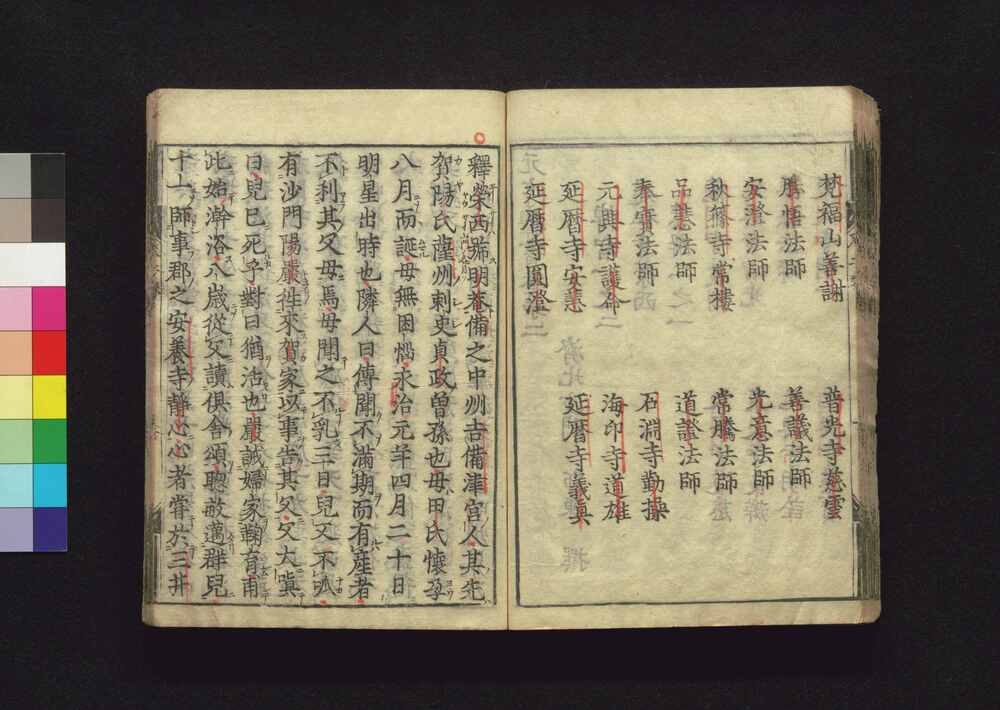 梵福山善謝　普光寺慈雲
勝悟法師　善議法師
安澄法師　光意法師
秋篠寺常樓　常騰法師
品慧法師　道證法師
奉實法師　石淵寺勤操
元興寺護命　海印寺道雄
延暦寺安慧　延暦寺義真
延暦寺圓澄
釋榮西號明菴備之中州吉備津宮人其先
賀陽氏薩州刺吏貞政曾孫也母田氏懷孕
八月而誕母無困惱永治元年四月二十日
明星出時也隣人曰傳聞不滿期而有産者
不利其父母焉母聞之不乳三日兒又不呱
有沙門陽嚴徃來賀家以事告其父父大嗔
曰兒已死乎對曰猶活也嚴誡婦家鞠育甫
此始澣浴八歳從父讀倶舍頌聰敏邁群兒
十一師事郡之安養寺靜心心者甞於三井